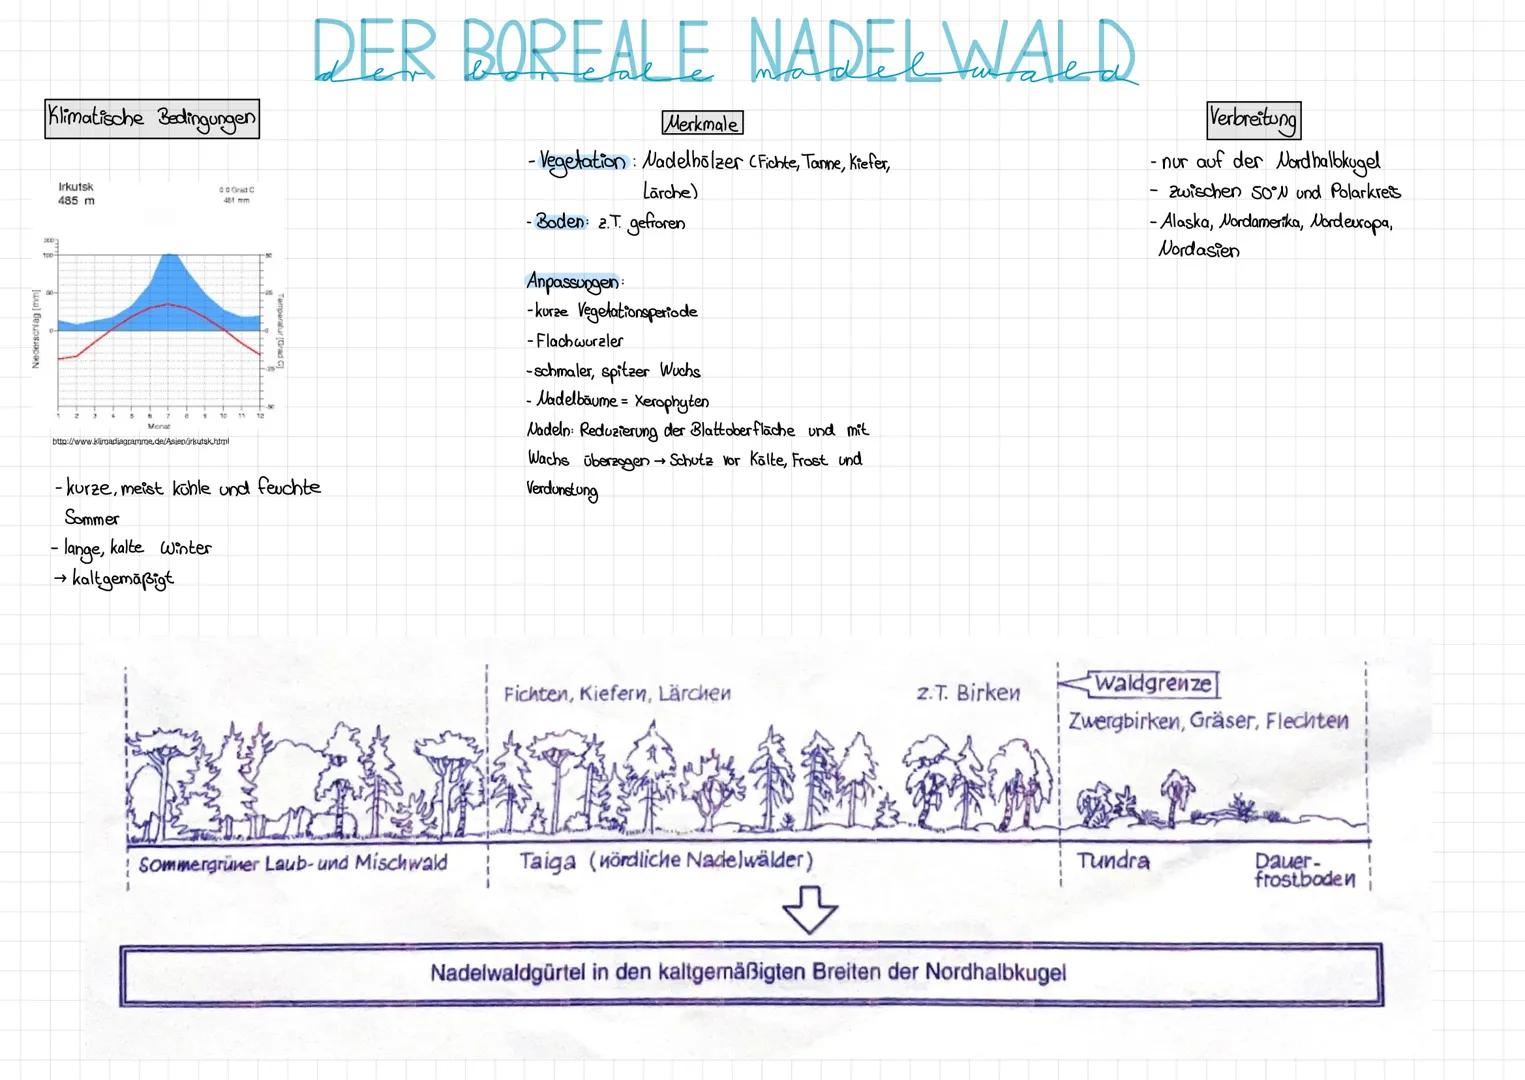 DER BOREALE NADELWALD
der boreale nadelwald
Klimatische Bedingungen
Irkutsk
485 m
0.0 Grad C
481 mm
300
100
50
0
50
25
0
-25
-50
Niederschlag [mm]
Temperatur [Grad C]
1 2 3 4 5 6 7 8 9 10 11 12
Monat
http://www.klimadiagramme.de/Asien/irkutsk.html
- kurze, meist kühle und feuchte
Sommer
- lange, kalte Winter
→ kaltgemäßigt
Merkmale
- Vegetation: Nadelhölzer (Fichte, Tanne, Kiefer,
Lärche)
- Boden: z.T. gefroren
Anpassungen:
- kurze Vegetationsperiode
- Flachwurzler
- schmaler, spitzer Wuchs
- Nadelbäume = Xerophyten
Nadeln: Reduzierung der Blattoberfläche und mit
Wachs überzogen → Schutz vor Kälte, Frost und
Verdunstung
Verbreitung
- nur auf der Nordhalbkugel
- zwischen 50°N und Polarkreis
- Alaska, Nordamerika, Nordeuropa,
Nordasien
Fichten, Kiefern, Lärchen
z.T. Birken
Waldgrenze
Zwergbirken, Gräser, Flechten
Sommergrüner Laub- und Mischwald
Taiga (nördliche Nadelwälder)
Tundra
Dauer-
frostboden
Nadelwaldgürtel in den kaltgemäßigten Breiten der Nordhalbkugel